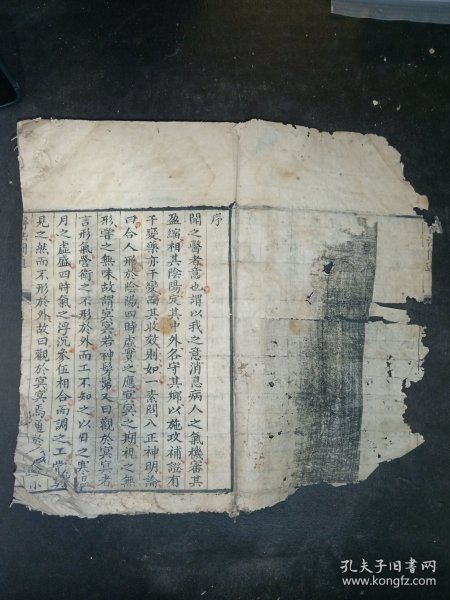 序
聞之醫者意也謂以我之意消息病人之氣機審其
盈縮相其陰陽定其中外各守其鄉以施攻補證有
千變藥亦千變而其收效則如一素問八正神明論
曰合人形於陰陽四時虛實之應冥冥之期視之無
形嘗之無味故謂冥冥若神髣髴又曰觀於冥冥者
言形氣營衛之不形於外而工不知之以日之寒温
月之虛盛四時氣之浮沉參伍相合而調之工常先
見之然而不形於外故曰觀於冥冥焉
小
孔夫子旧书网
www.kongfz.com